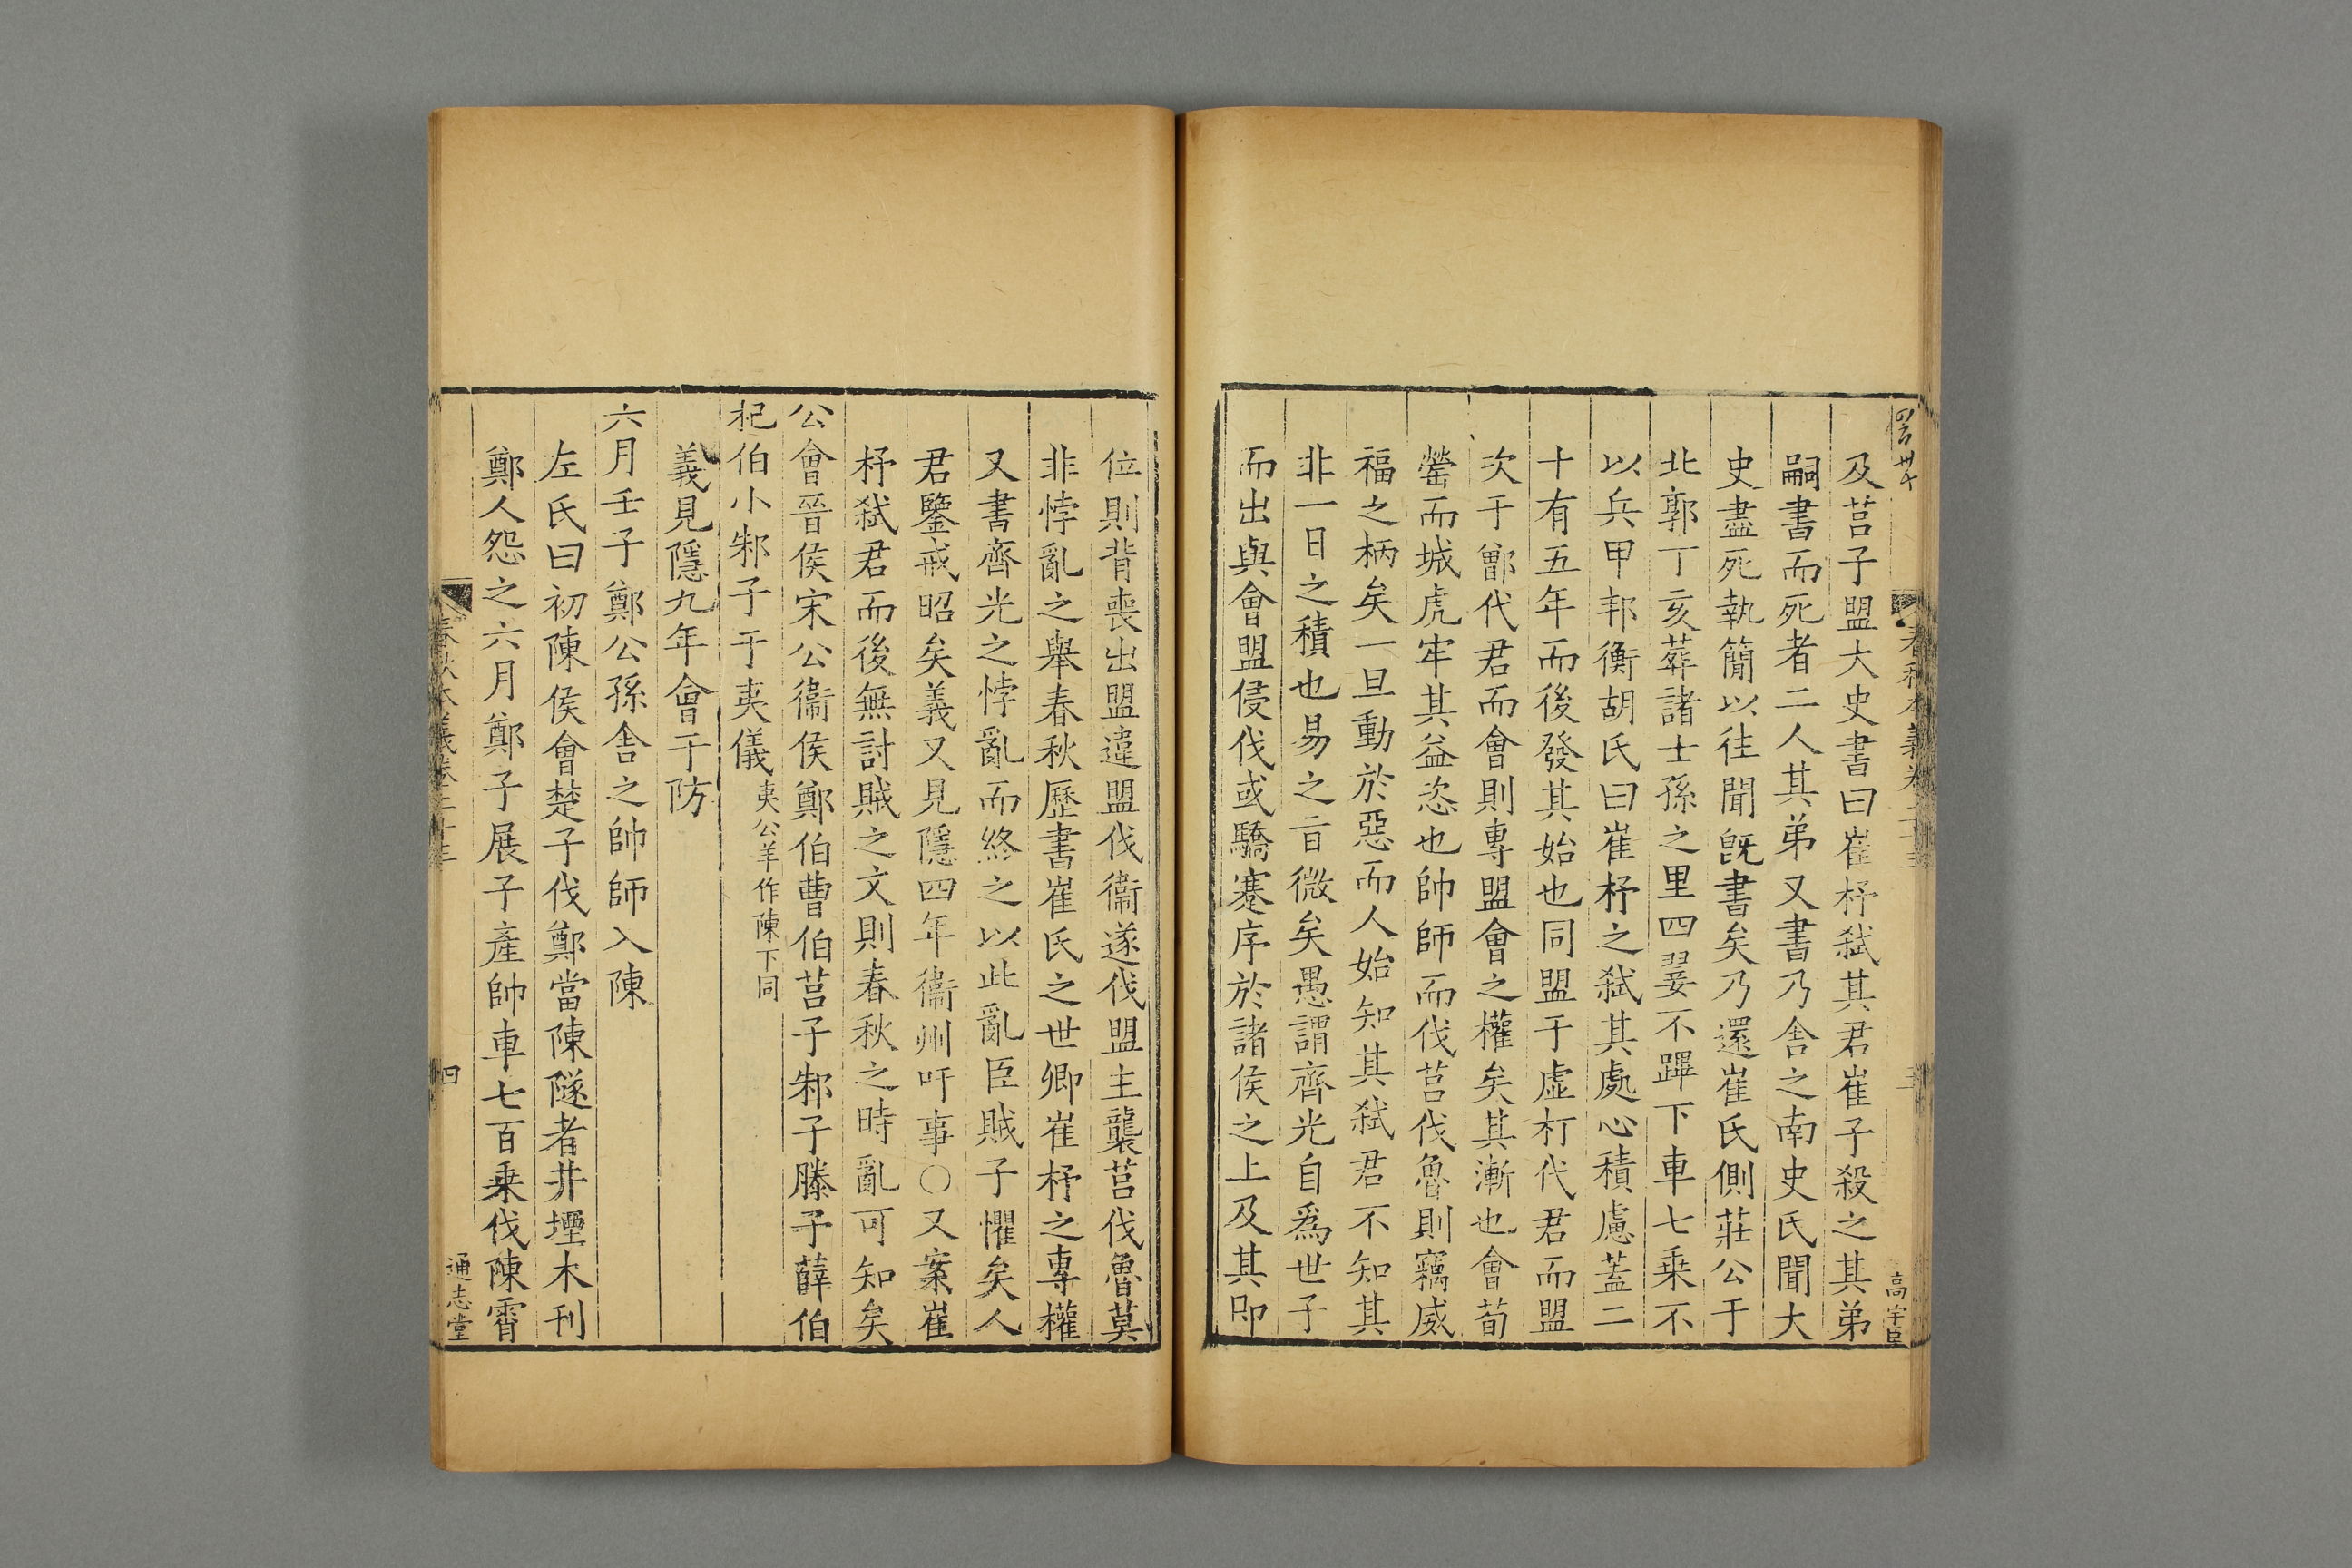 及莒子盟大史書曰崔杼弑其君崔子殺之其弟
嗣書而死者二人其弟又書乃舍之南史氏聞大
史盡死執簡以往聞旣書矣乃還崔氏側莊公于
北郭丁亥葬諸士孫之里四翣不蹕下車七乗不
以兵甲邦衡胡氏曰崔杼之弑其處心積慮蓋二
十有五年而後發其始也同盟于虛朾代君而盟
次于鄫代君而會則專盟會之權矣其漸也會荀
罃而城虎牢其益恣也帥師而伐莒伐魯則竊威
福之柄矣一旦動於惡而人始知其弑君不知其
非一日之積也易之言微矣愚謂齊光自爲世子
而出與會盟侵伐或驕蹇序於諸侯之上及其卽
位則背喪出盟違盟伐衞遂伐盟主襲莒伐魯莫
非悖亂之舉春秋歷書崔氏之世卿崔杼之專權
又書齊光之悖亂而終之以此亂臣賊子懼矣人
君鑒戒昭矣義又見隱四年衞州吁事○又案崔
杼弑君而後無討賊之文則春秋之時亂可知矣
公會晉侯宋公衞侯鄭伯曹伯莒子邾子滕子薛伯
杞伯小邾子于夷儀夷公羊作陳下同
義見隱九年會于防
六月壬子鄭公孫舍之帥師入陳
左氏曰初陳侯會楚子伐鄭當陳隧者井堙木刊
鄭人怨之六月鄭子展子產帥車七百乗伐陳宵
春秋本義卷二十三
四
通志堂
高宇臣